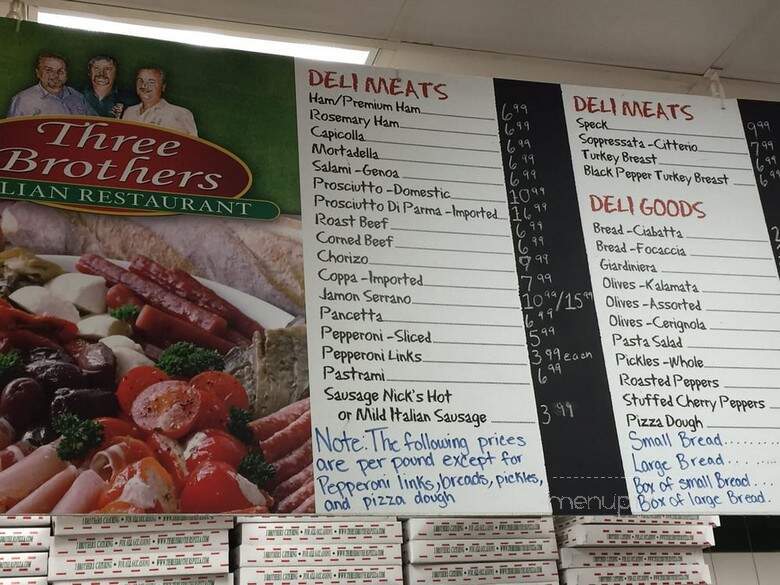 Three
Brothers
LIAN RESTAURANT
DELI MEATS
Ham/Premium Ham 6.99
Rosemary Ham 6.99
Capicolla 6.99
Mortadella 6.99
Salami -Genoa 6.99
Prosciutto -Domestic 10.99
Prosciutto Di Parma -Imported 16.99
Roast Beef 6.99
Corned Beef 6.99
Chorizo 9.99
Coppa -Imported 7.99
Jamon Serrano 10.99/15.99
Pancetta 6.99
Pepperoni -Sliced 5.99
Pepperoni Links 3.99 each
Pastrami 6.99
Sausage Nick's Hot
or Mild Italian Sausage 3.99
Note: The following prices
are per pound except for
Pepperoni links, breads, pickles,
and pizza dough
DELI MEATS
Speck 9.99
Soppressata -Citterio 7.99
Turkey Breast 6.99
Black Pepper Turkey Breast 6.99
DELI GOODS
Bread -Ciabatta
Bread -Focaccia
Giardiniera
Olives -Kalamata
Olives -Assorted
Olives -Cerignola
Pasta Salad
Pickles -Whole
Roasted Peppers
Stuffed Cherry Peppers
Pizza Dough
Small Bread........
Large Bread......
Box of small Bread...
Box of large Bread.
menup